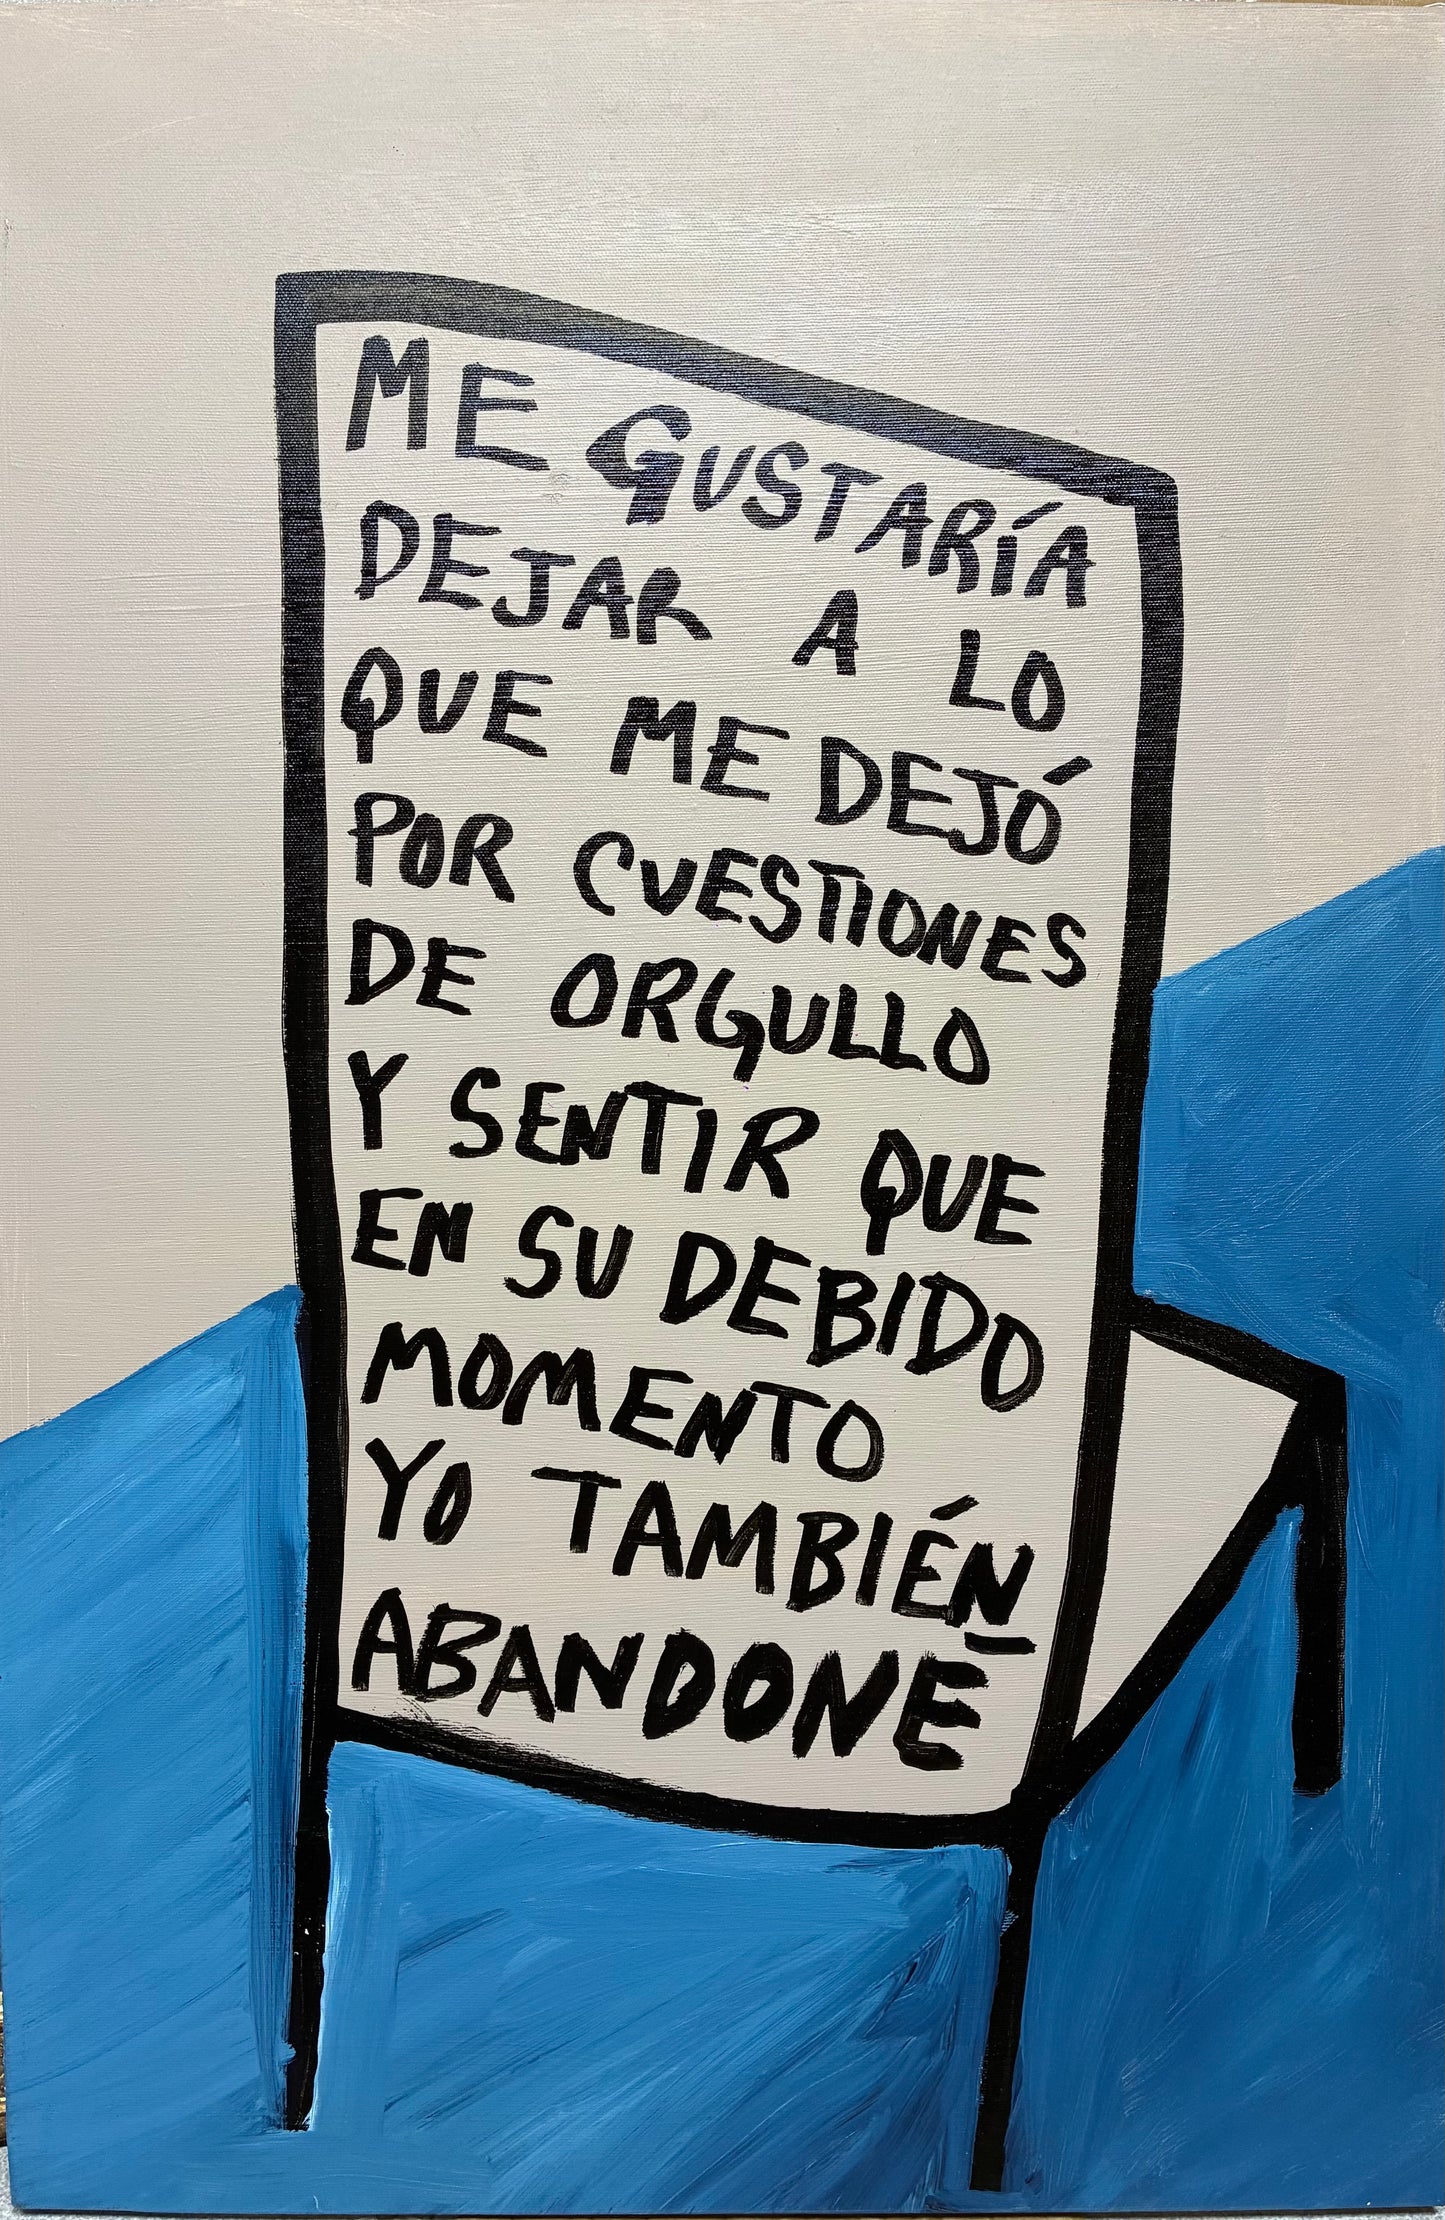 ME GUSTARÍA
DEJAR A LO
QUE ME DEJÓ
POR CUESTIONES
DE ORGULLO
Y SENTIR QUE
EN SU DEBIDO
MOMENTO
YO TAMBIÉN
ABANDONÉ